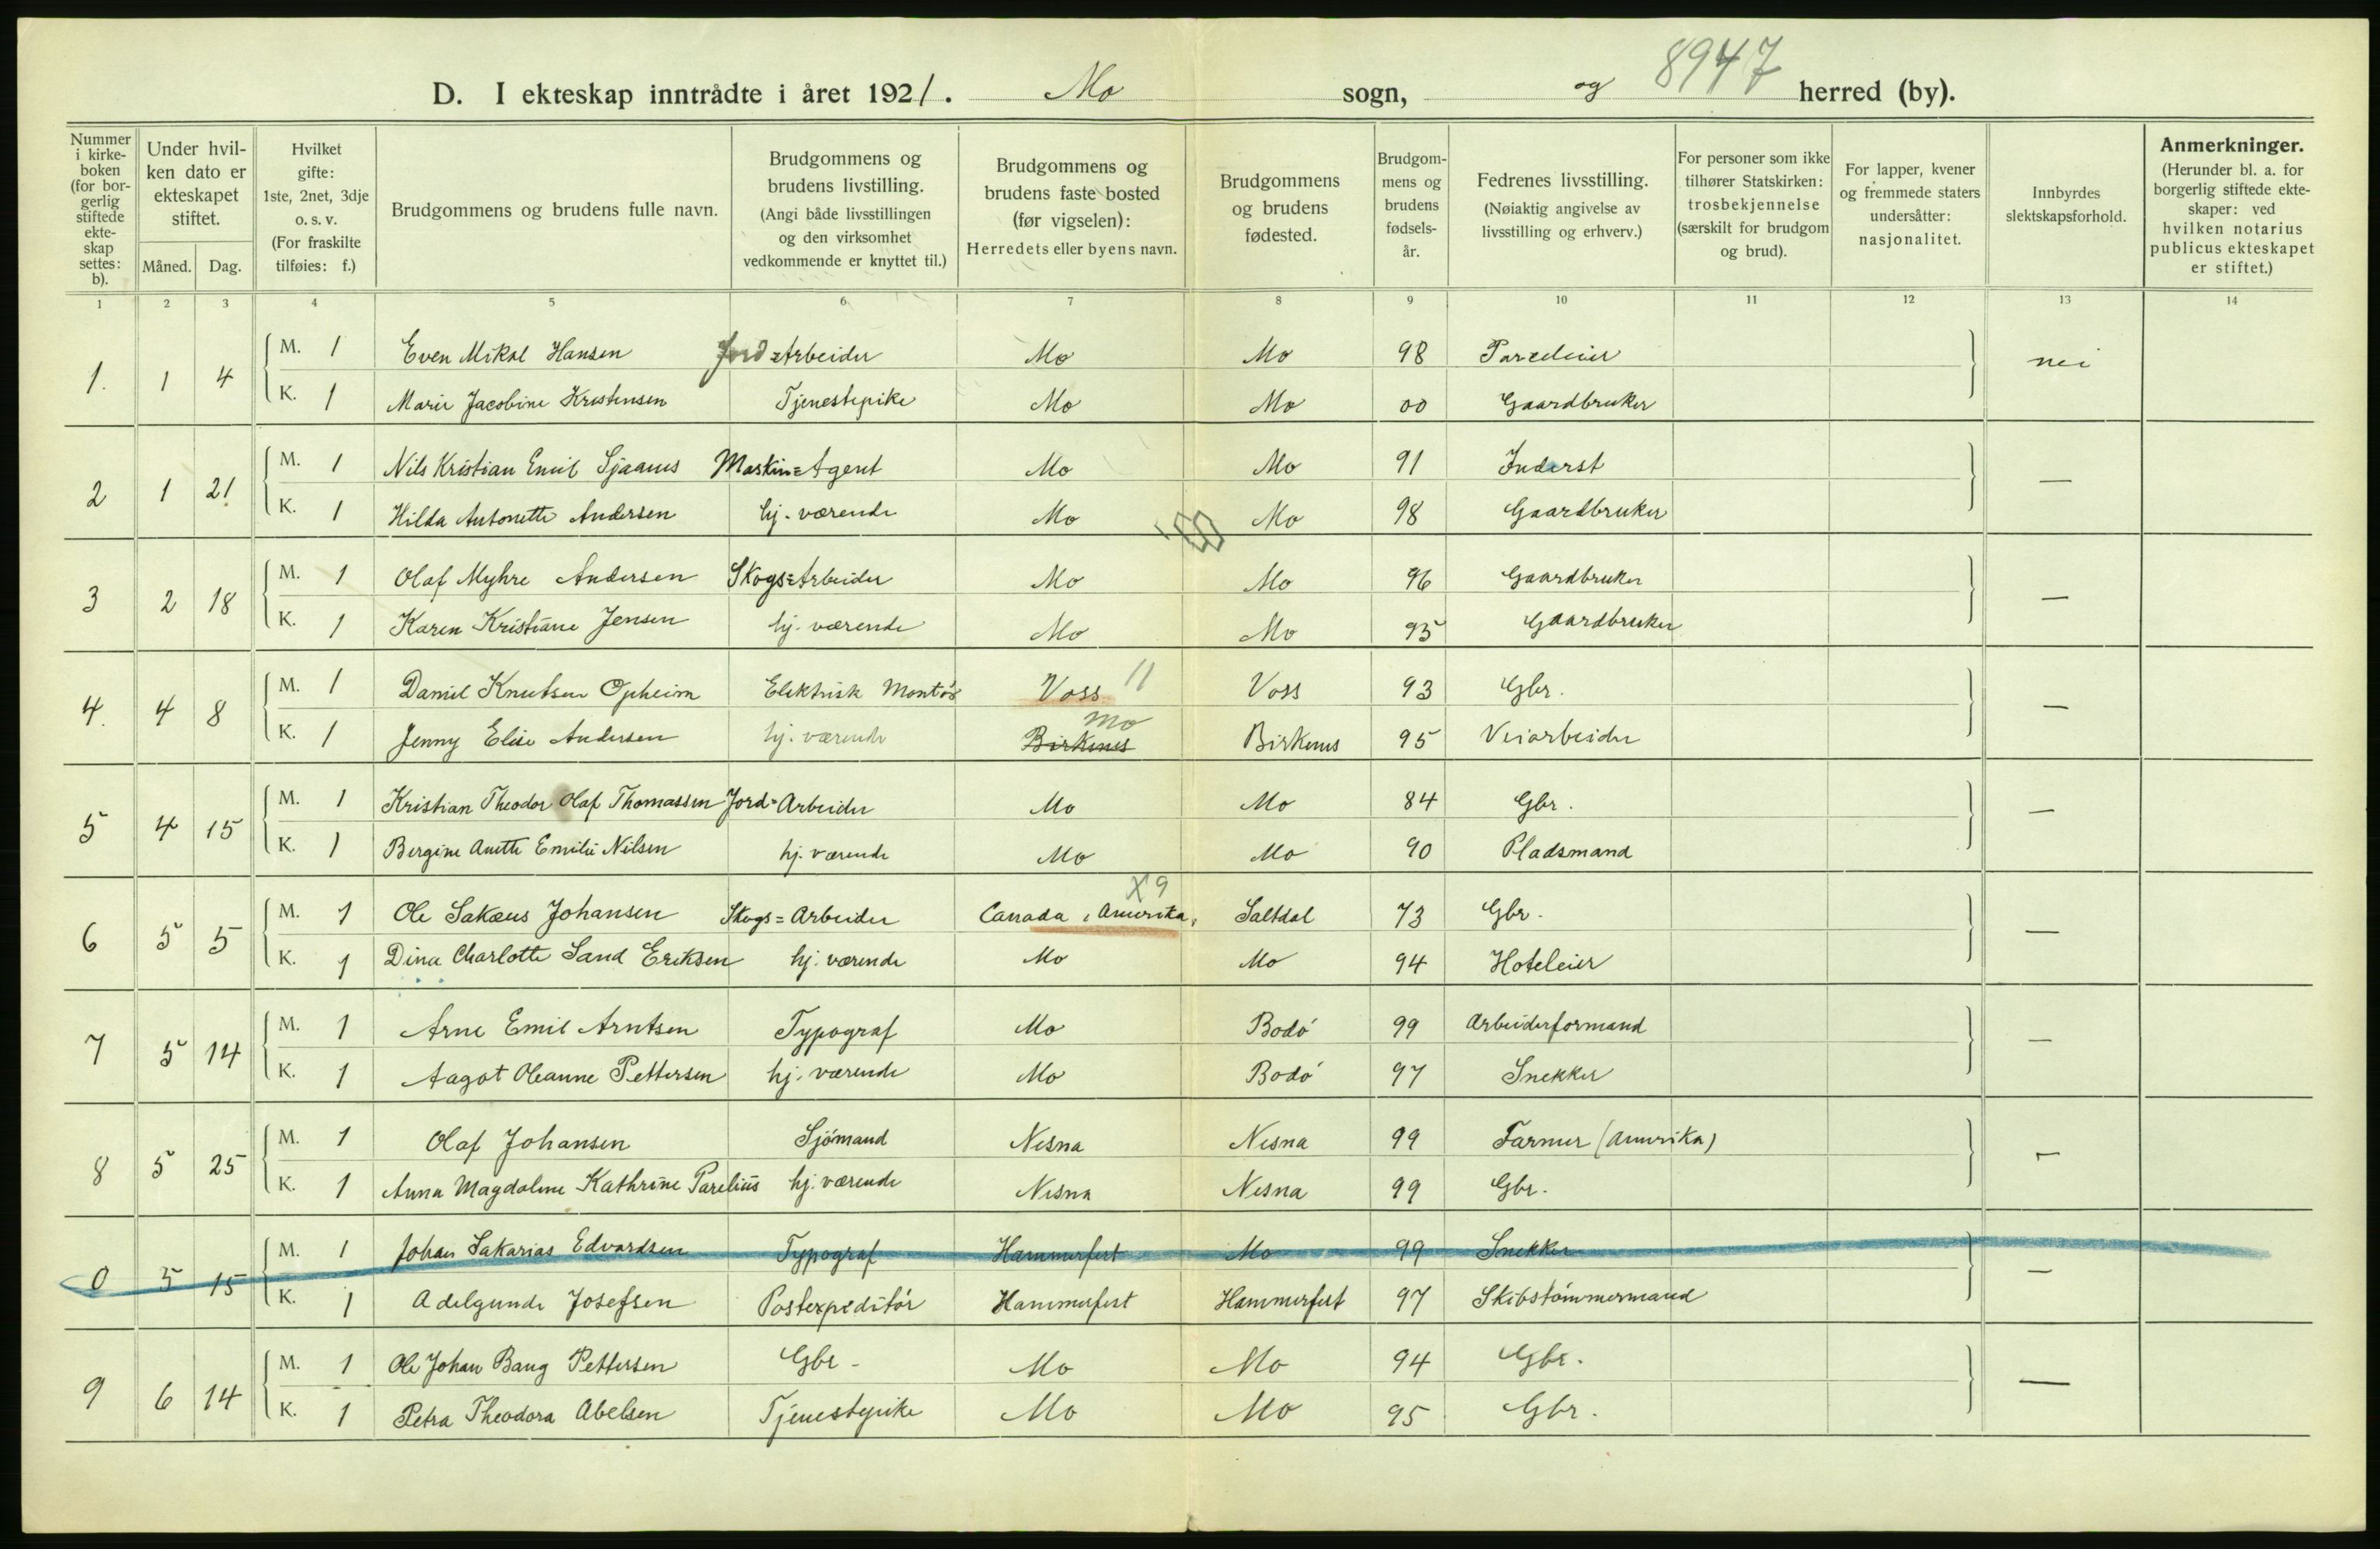 D. I ekteskap inntrådte i året 1921. Mo sogn, og 8947 herred (by).
Nummer i kirke-boken (for bor-gerlig stiftede ekte-skap settes: b).
Under hvil-ken dato er ekteskapet stiftet.
Måned. Dag.
Hvilket gifte: 1ste, 2net, 3dje o. s. v. (For fraskilte tilføies: f.)
Brudgommens og brudens fulle navn.
Brudgommens og brudens livstilling. (Angi både livsstillingen og den virksomhet vedkommende er knyttet til.)
Brudgommens og brudens faste bosted (før vigselen): Herredets eller byens navn.
Brudgommens og brudens fødested.
Brudgom-mens og brudens fødsels-år.
Fedrenes livsstilling. (Nøiaktig angivelse av livsstilling og erhverv.)
For personer som ikke tilhører Statskirken: trosbekjennelse (særskilt for brudgom og brud).
For lapper, kvener og fremmede staters undersåtter: nasjonalitet.
Innbyrdes slektskapsforhold.
Anmerkninger. (Herunder bl. a. for borgerlig stiftede ekte-skaper: ved hvilken notarius publicus ekteskapet er stiftet.)
1 2 3 4 5 6 7 8 9 10 11 12 13 14
1. 1 4 M. 1 Even Mikal Hansen Jord=Arbeider Mo Mo 98 Parceleier nei
K. 1 Marie Jacobine Kristensen Tjenestepike Mo Mo 00 Gaardbruker
2 1 21 M. 1 Nils Kristian Emil Sjaanes Maskin=Agent Mo Mo 91 Inderst —
K. 1 Hilda Antonette Andersen hj. værende Mo Mo 98 Gaardbruker
3 2 18 M. 1 Olaf Myhre Andersen Skogs=Arbeider Mo Mo 96 Gaardbruker —
K. 1 Karen Kristiane Jensen hj. værende Mo Mo 95 Gaardbruker
4. 4 8 M. 1 Daniel Knutsen Opheim Elektrisk Montör Voss 11 Voss 93 Gbr. —
K. 1 Jenny Elise Andersen hj. værende Birkenes Mo Birkenes 95 Veiarbeider
5 4 15 M. 1 Kristian Theodor Olaf Thomassen Jord=Arbeider Mo Mo 84 Gbr. —
K. 1 Bergine Anette Emilie Nilsen hj. værende Mo Mo 90 Pladsmand
6 5 5 M. 1 Ole Sakæus Johansen Skogs=Arbeider Canada, Amerika, X9 Saltdal 73 Gbr. —
K. 1 Dina Charlotte Sand Eriksen hj. værende Mo Mo 94 Hoteleier
7 5 14 M. 1 Arne Emil Arntsen Typograf Mo Bodó 99 Arbeiderformand —
K. 1 Aagot Oleanne Pettersen hj. værende Mo Bodó 97 Snekker
8 5 25 M. 1 Olaf Johansen Sjómand Nesna Nesna 99 Farmer (Amerika) —
K. 1 Anna Magdalene Kathrine Parelius hj. værende Nesna Nesna 99 Gbr.
0 5 15 M. 1 Johan Sakarias Edvardsen Typograf Hammerfest Mo 99 Snekker —
K. 1 Adelgunde Josefsen Postexpeditór Hammerfest Hammerfest 97 Skibstómmermand
9 6 14 M. 1 Ole Johan Bang Pettersen Gbr. Mo Mo 94 Gbr. —
K. 1 Petra Theodora Abelsen Tjenestepike Mo Mo 95 Gbr.